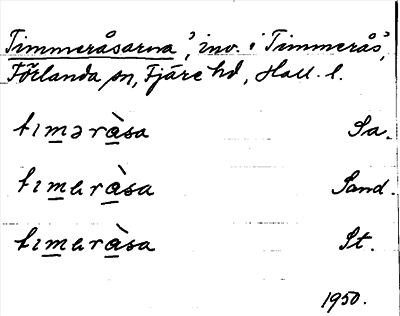 Timmeråsarna, 'inv. i Timmerås',
Förlanda sn, Fjäre hd, Hall. l.
tıməràsa Sa.
tımɐràsa Sand.
tımɐràsa St.
1950.